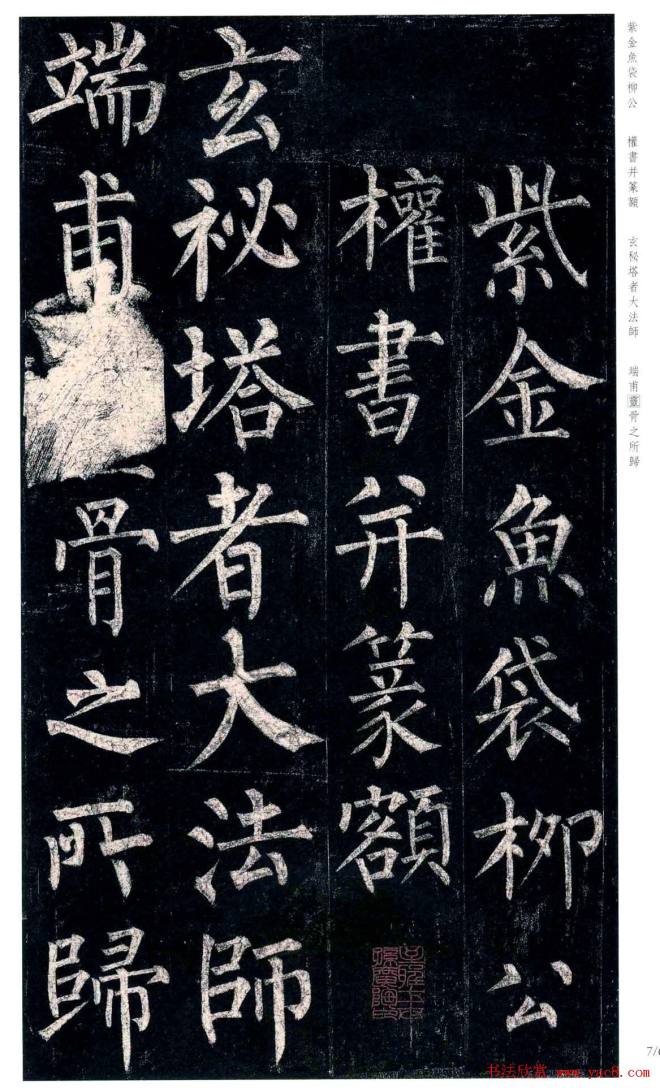 紫金魚袋柳公
權書并篆額
玄祕塔者大法師
端甫骨之所歸
紫金魚袋柳公 權書并篆額 玄秘塔者大法師 端甫靈骨之所歸
7/6
书法欣赏 www.yac8.com